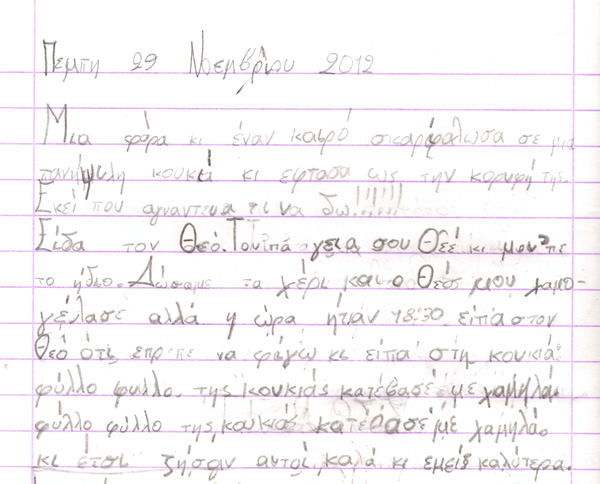 Πεμπη 29 Νοεμβρίου 2012
Μια φορα κι έναν καιρό σκαρφάλωσα σε μια
πανήψηλη κουκιά κι εφτασα ως την κορυφή της.
Εκεί που αγναντευα τι να δω!!!!!!
Είδα τον Θεό. Του ειπά γεια σου Θεέ κι μου 'πε
το ήδιο. Δώσαμε τα χέρι και ο Θεός μου χαμο-
γέλασε αλλά η ώρα ήταν 18:30 ειπα στον
Θεό ότι επρεπε να φάγω κι είπα στη κουκιά:
φύλλο φυλλο της κουκιάς κατέβασέ με χαμηλά.
φύλλο φύλλο της κουκιάς κατέβασέ με χαμηλά.
κι έτσι ζήσαν αυτοί καλά κι εμείς καλύτερα.